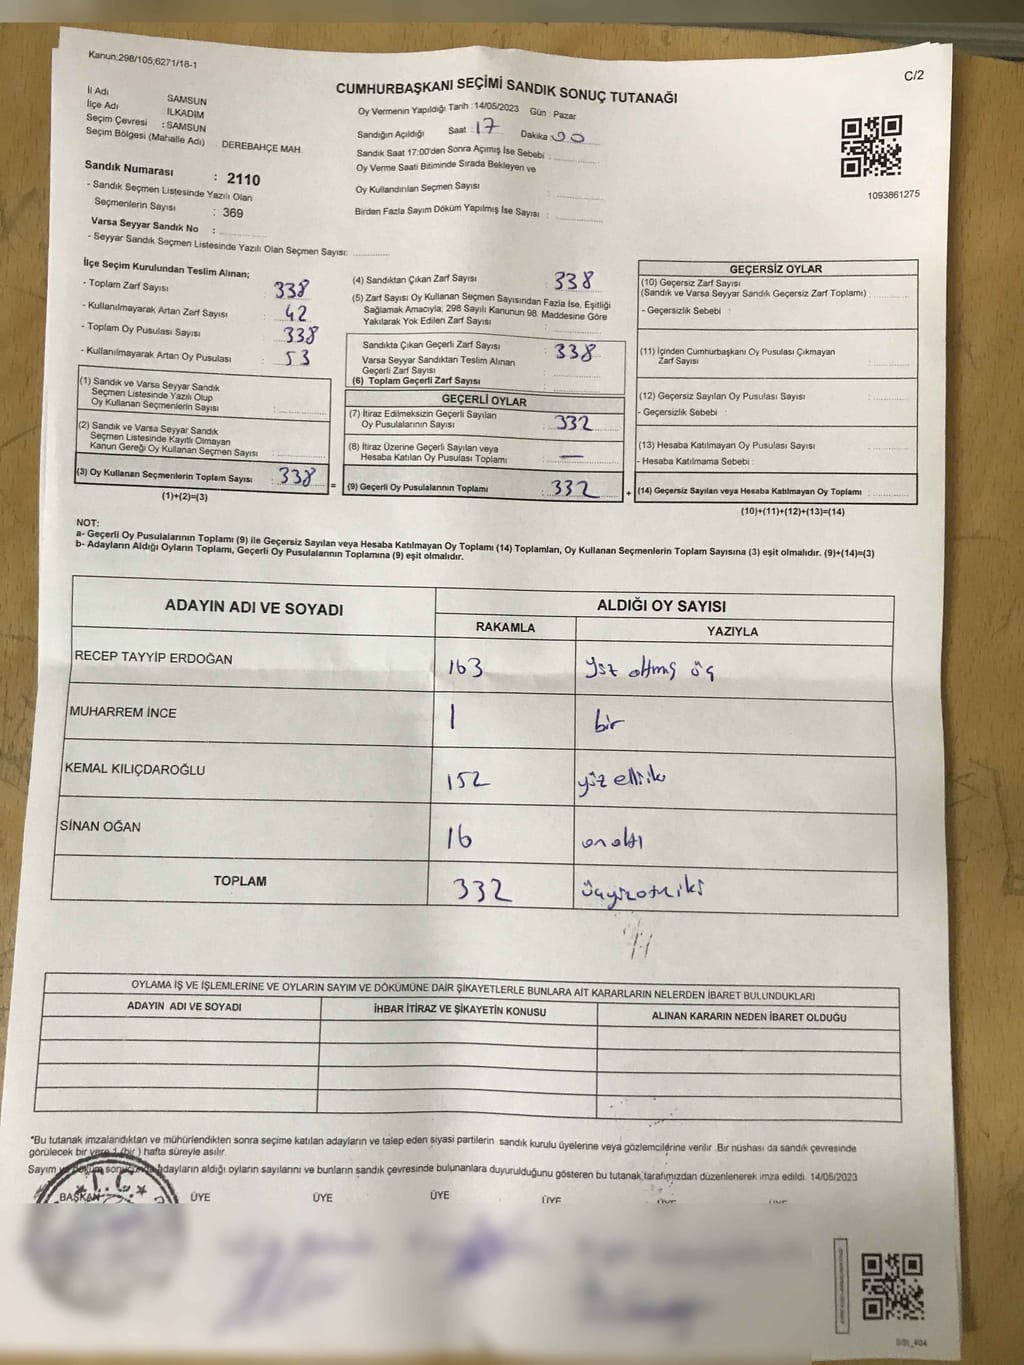 Kanun;298/105;6271/18-1
C/2
CUMHURBAŞKANI SEÇİMİ SANDIK SONUÇ TUTANAĞI
İl Adı SAMSUN
İlçe Adı : İLKADIM
Seçim Çevresi : SAMSUN
Seçim Bölgesi (Mahalle Adı) DEREBAHÇE MAH.
Sandık Numarası : 2110
- Sandık Seçmen Listesinde Yazılı Olan
Seçmenlerin Sayısı : 369
Varsa Seyyar Sandık No :
- Seyyar Sandık Seçmen Listesinde Yazılı Olan Seçmen Sayısı:
Oy Vermenin Yapıldığı Tarih : 14/05/2023 Gün : Pazar
Sandığın Açıldığı Saat : 17 Dakika : 00
Sandık Saat 17:00'den Sonra Açımış İse Sebebi :
Oy Verme Saati Bitiminde Sırada Bekleyen ve
Oy Kullandırılan Seçmen Sayısı :
Birden Fazla Sayım Döküm Yapılmış İse Sayısı :
1093861275
İlçe Seçim Kurulundan Teslim Alınan;
- Toplam Zarf Sayısı : 338
- Kullanılmayarak Artan Zarf Sayısı : 42
- Toplam Oy Pusulası Sayısı : 338
- Kullanılmayarak Artan Oy Pusulası : 53
(1) Sandık ve Varsa Seyyar Sandık
Seçmen Listesinde Yazılı Olup
Oy Kullanan Seçmenlerin Sayısı :
(2) Sandık ve Varsa Seyyar Sandık
Seçmen Listesinde Kayıtlı Olmayan
Kanun Gereği Oy Kullanan Seçmen Sayısı :
(3) Oy Kullanan Seçmenlerin Toplam Sayısı : 338
(1)+(2)=(3)
(4) Sandıktan Çıkan Zarf Sayısı : 338
(5) Zarf Sayısı Oy Kullanan Seçmen Sayısından Fazla İse, Eşitliği
Sağlamak Amacıyla; 298 Sayılı Kanunun 98. Maddesine Göre
Yakılarak Yok Edilen Zarf Sayısı :
Sandıkta Çıkan Geçerli Zarf Sayısı : 338
Varsa Seyyar Sandıktan Teslim Alınan
Geçerli Zarf Sayısı :
(6) Toplam Geçerli Zarf Sayısı
GEÇERLİ OYLAR
(7) İtiraz Edilmeksizin Geçerli Sayılan
Oy Pusulalarının Sayısı : 332
(8) İtiraz Üzerine Geçerli Sayılan veya
Hesaba Katılan Oy Pusulası Toplamı : —
= (9) Geçerli Oy Pusulalarının Toplamı : 332
GEÇERSİZ OYLAR
(10) Geçersiz Zarf Sayısı
(Sandık ve Varsa Seyyar Sandık Geçersiz Zarf Toplamı) :
- Geçersizlik Sebebi :
(11) İçinden Cumhurbaşkanı Oy Pusulası Çıkmayan
Zarf Sayısı :
(12) Geçersiz Sayılan Oy Pusulası Sayısı :
- Geçersizlik Sebebi :
(13) Hesaba Katılmayan Oy Pusulası Sayısı :
- Hesaba Katılmama Sebebi :
+ (14) Geçersiz Sayılan veya Hesaba Katılmayan Oy Toplamı :
(10)+(11)+(12)+(13)=(14)
NOT:
a- Geçerli Oy Pusulalarının Toplamı (9) ile Geçersiz Sayılan veya Hesaba Katılmayan Oy Toplamı (14) Toplamları, Oy Kullanan Seçmenlerin Toplam Sayısına (3) eşit olmalıdır. (9)+(14)=(3)
b- Adayların Aldığı Oyların Toplamı, Geçerli Oy Pusulalarının Toplamına (9) eşit olmalıdır.
ADAYIN ADI VE SOYADI
ALDIĞI OY SAYISI
RAKAMLA YAZIYLA
RECEP TAYYİP ERDOĞAN 163 yüz altmış üç
MUHARREM İNCE 1 bir
KEMAL KILIÇDAROĞLU 152 yüz elli iki
SİNAN OĞAN 16 on altı
TOPLAM 332 üçyüzotuziki
OYLAMA İŞ VE İŞLEMLERİNE VE OYLARIN SAYIM VE DÖKÜMÜNE DAİR ŞİKAYETLERLE BUNLARA AİT KARARLARIN NELERDEN İBARET BULUNDUKLARI
ADAYIN ADI VE SOYADI İHBAR İTİRAZ VE ŞİKAYETİN KONUSU ALINAN KARARIN NEDEN İBARET OLDUĞU
*Bu tutanak imzalandıktan ve mühürlendikten sonra seçime katılan adayların ve talep eden siyasi partilerin sandık kurulu üyelerine veya gözlemcilerine verilir. Bir nüshası da sandık çevresinde
görülecek bir yere 1 (bir ) hafta süreyle asılır.
Sayım ve döküm sonucunda adayların aldığı oyların sayılarını ve bunların sandık çevresinde bulunanlara duyurulduğunu gösteren bu tutanak tarafımızdan düzenlenerek imza edildi. 14/05/2023
BAŞKAN ÜYE ÜYE ÜYE ÜYE ÜYE ÜYE
T.C.